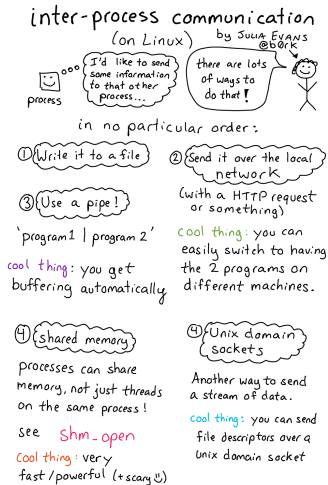 inter-process communication
(on Linux)
by JULIA EVANS
@b0rk
I'd like to send
some information
to that other
process...
process
there are lots
of ways to
do that!
in no particular order:
① Write it to a file
② Send it over the local
network
(with a HTTP request
or something)
cool thing: you can
easily switch to having
the 2 programs on
different machines.
③ Use a pipe!
'program1 | program2'
cool thing: you get
buffering automatically
④ shared memory
processes can share
memory, not just threads
on the same process!
see shm_open
Cool thing: very
fast/powerful (+scary☺)
④ Unix domain
sockets
Another way to send
a stream of data.
cool thing: you can send
file descriptors over a
unix domain socket